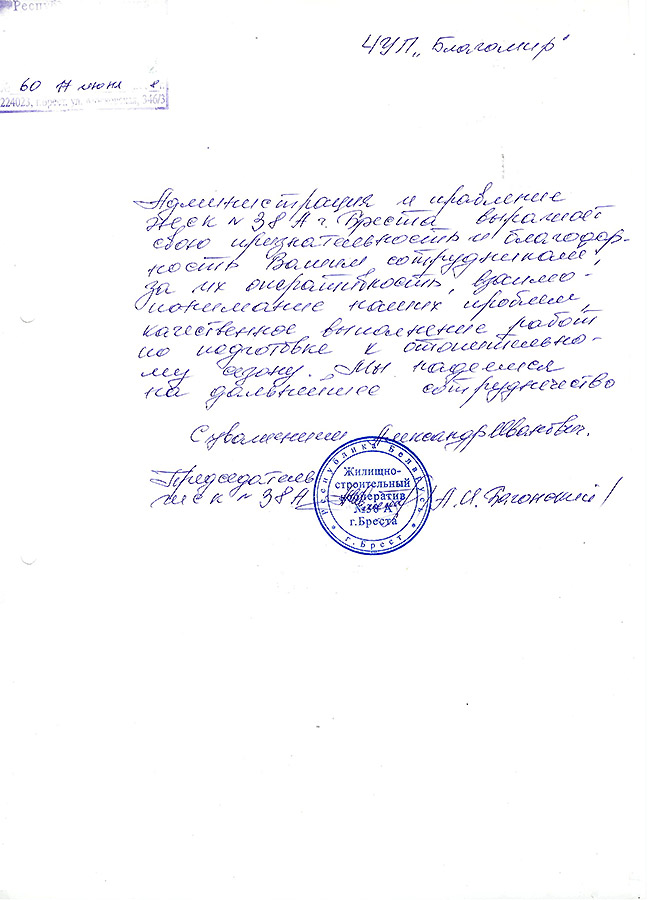 Респуб
ЧУП „Благомир"
60 17 июня 8
224023, г.Брест, ул. 346/3
Администрация и правление
ЖСК № 38 А г. Бреста выражает
свою признательность и благодар-
ность Вашим сотрудникам,
за их оперативность, взаимо-
понимание наших проблем,
качественное выполнение работ
по подготовке к отопительно-
му сезону. Мы надеемся
на дальнейшее сотрудничество
С уважением Александр Иванович.
Председатель
ЖСК № 38 А /А.И. /
Республика Беларусь
Жилищно-
строительный
кооператив
№38 А
г.Бреста
* г.Брест *